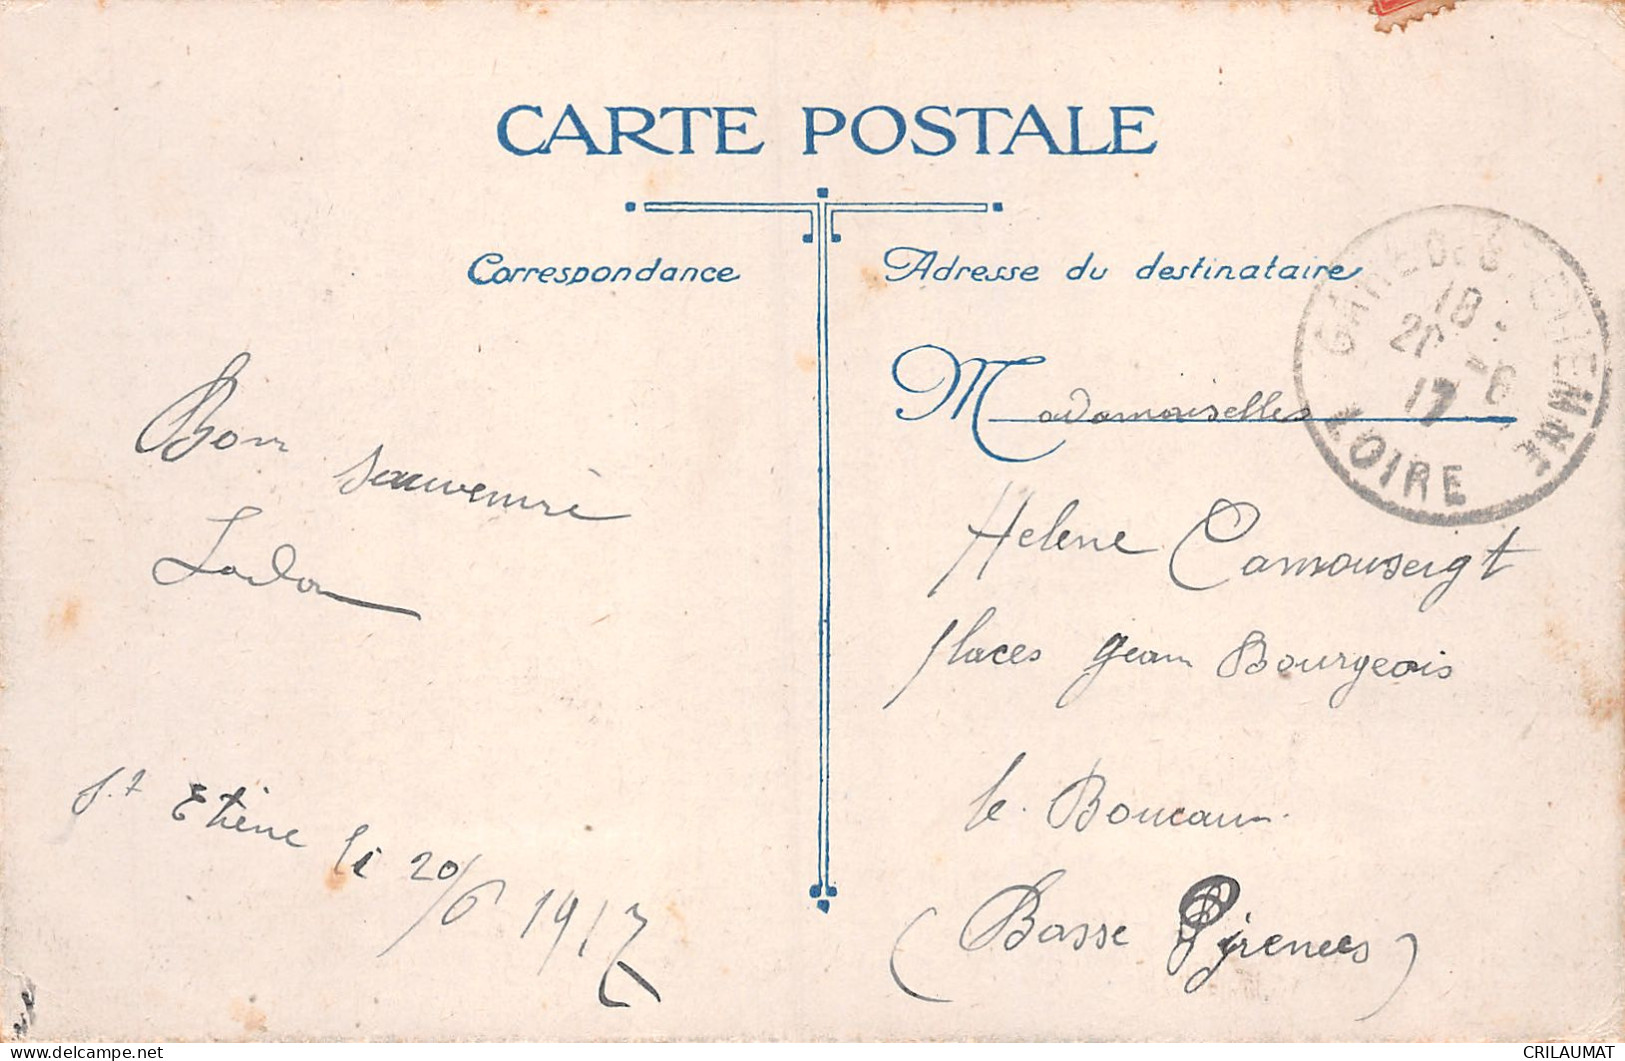 CARTE POSTALE
Correspondance
Adresse du destinataire
GARE DE ST ETIENNE
18
20 -6
17
LOIRE
Madamouiselles
Bon sauvenire
Helene Camouseigt
places Jean Bourgeois
St Etiene le 20/6 1917
le Boucau
(Basse Pyrenees)
CRILAUMAT